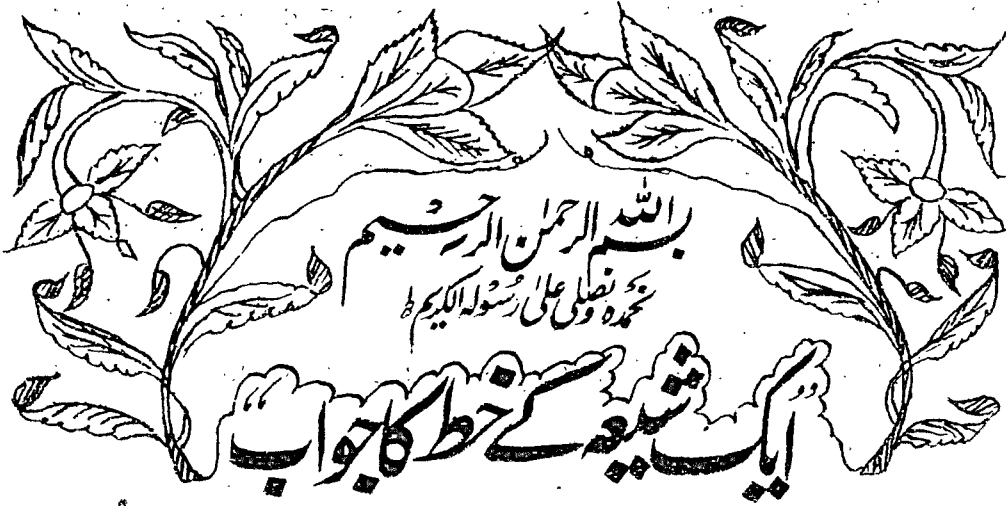 بسم اللہ الرحمٰن الرحیم
نحمدہ ونصلی علیٰ رسولہ الکریم ط
”ایک شیعہ کے خط کا جواب“